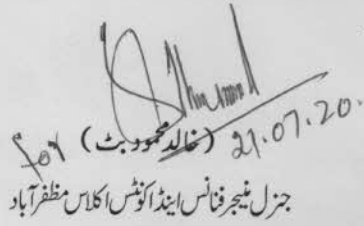 for (خالد محمود بٹ) 21.07.20.
جنرل منیجر فنانس اینڈ اکونٹس اکلاس مظفر آباد